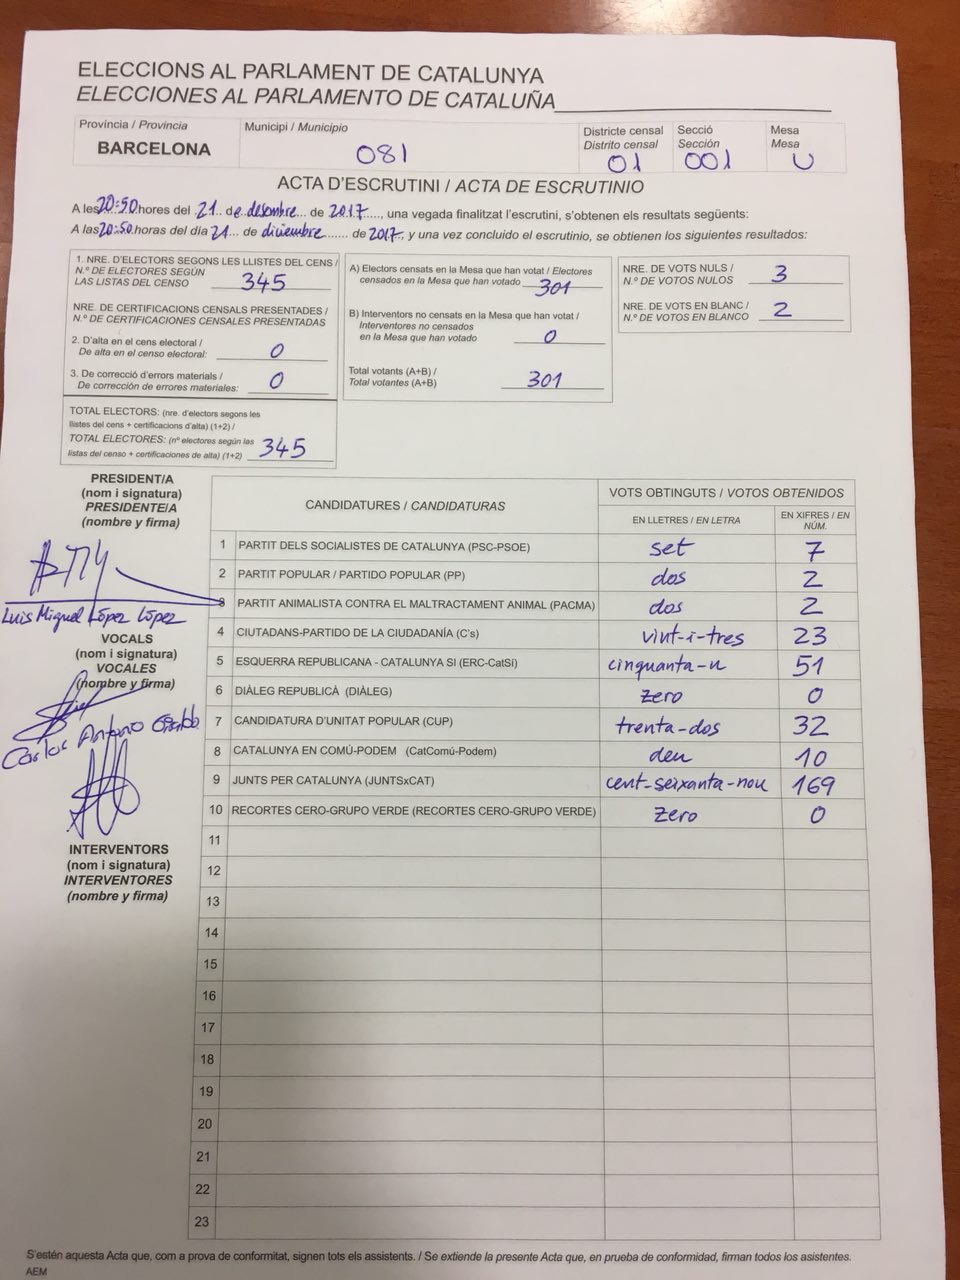 ELECCIONS AL PARLAMENT DE CATALUNYA
ELECCIONES AL PARLAMENTO DE CATALUÑA
Província / Provincia
BARCELONA
Municipi / Municipio
081
Districte censal
Distrito censal
01
Secció
Sección
001
Mesa
Mesa
U
ACTA D'ESCRUTINI / ACTA DE ESCRUTINIO
A les 20:50 hores del 21 de desembre de 2017, una vegada finalitzat l'escrutini, s'obtenen els resultats següents:
A las 20:50 horas del día 21 de diciembre de 2017, y una vez concluido el escrutinio, se obtienen los siguientes resultados:
1. NRE. D'ELECTORS SEGONS LES LLISTES DEL CENS /
N.º DE ELECTORES SEGÚN
LAS LISTAS DEL CENSO 345
NRE. DE CERTIFICACIONS CENSALS PRESENTADES /
N.º DE CERTIFICACIONES CENSALES PRESENTADAS
2. D'alta en el cens electoral /
De alta en el censo electoral: 0
3. De correcció d'errors materials /
De corrección de errores materiales: 0
TOTAL ELECTORS: (nre. d'electors segons les
llistes del cens + certificacions d'alta) (1+2) /
TOTAL ELECTORES: (nº electores según las
listas del censo + certificaciones de alta) (1+2) 345
A) Electors censats en la Mesa que han votat / Electores
censados en la Mesa que han votado 301
B) Interventors no censats en la Mesa que han votat /
Interventores no censados
en la Mesa que han votado 0
Total votants (A+B) /
Total votantes (A+B) 301
NRE. DE VOTS NULS /
N.º DE VOTOS NULOS 3
NRE. DE VOTS EN BLANC /
N.º DE VOTOS EN BLANCO 2
PRESIDENT/A
(nom i signatura)
PRESIDENTE/A
(nombre y firma)
Luis Miguel López López
VOCALS
(nom i signatura)
VOCALES
(nombre y firma)
Carlos Antonio
INTERVENTORS
(nom i signatura)
INTERVENTORES
(nombre y firma)
CANDIDATURES / CANDIDATURAS
VOTS OBTINGUTS / VOTOS OBTENIDOS
EN LLETRES / EN LETRA
EN XIFRES / EN NÚM.
1 PARTIT DELS SOCIALISTES DE CATALUNYA (PSC-PSOE) set 7
2 PARTIT POPULAR / PARTIDO POPULAR (PP) dos 2
3 PARTIT ANIMALISTA CONTRA EL MALTRACTAMENT ANIMAL (PACMA) dos 2
4 CIUTADANS-PARTIDO DE LA CIUDADANÍA (C's) vint-i-tres 23
5 ESQUERRA REPUBLICANA - CATALUNYA SI (ERC-CatSí) cinquanta-u 51
6 DIÀLEG REPUBLICÀ (DIÀLEG) zero 0
7 CANDIDATURA D'UNITAT POPULAR (CUP) trenta-dos 32
8 CATALUNYA EN COMÚ-PODEM (CatComú-Podem) deu 10
9 JUNTS PER CATALUNYA (JUNTSxCAT) cent-seixanta-nou 169
10 RECORTES CERO-GRUPO VERDE (RECORTES CERO-GRUPO VERDE) zero 0
11
12
13
14
15
16
17
18
19
20
21
22
23
S'estén aquesta Acta que, com a prova de conformitat, signen tots els assistents. / Se extiende la presente Acta que, en prueba de conformidad, firman todos los asistentes.
AEM